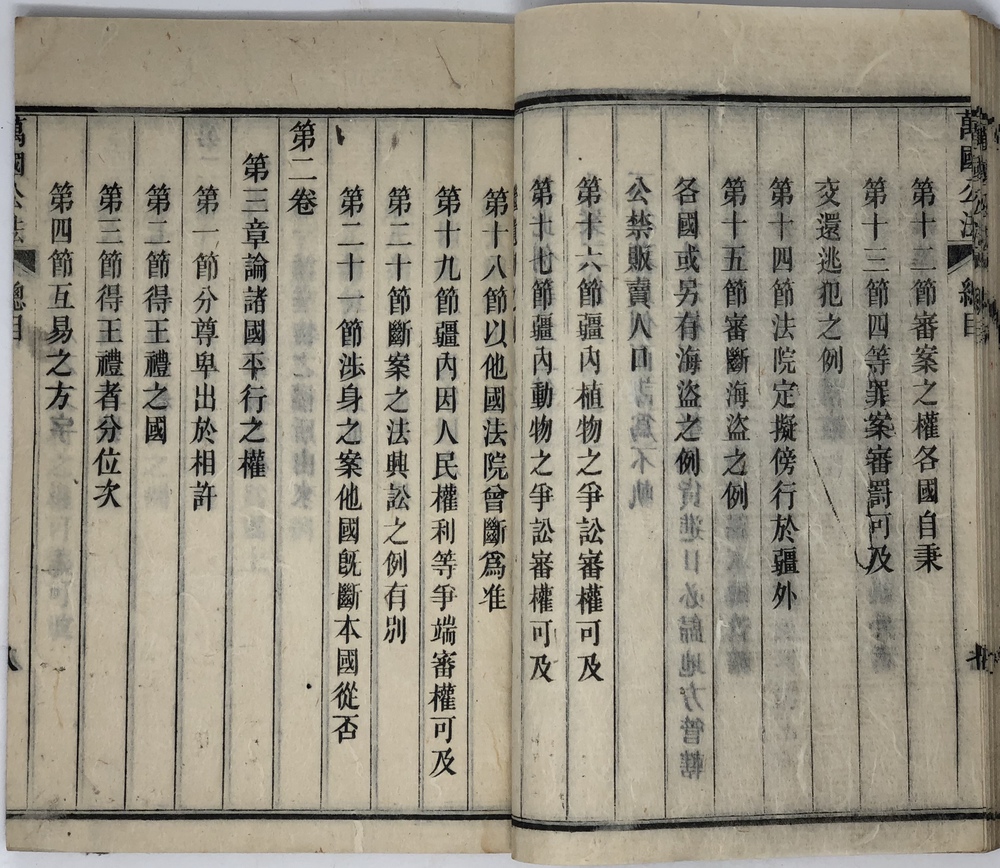 萬國公法 總目
第十二節審案之權各國自秉
第十三節四等罪案審罰可及
交還逃犯之例
第十四節法院定擬傍行於疆外
第十五節審斷海盜之例
各國或另有海盜之例
公禁販賣人口
第十六節疆內植物之爭訟審權可及
第十七節疆內動物之爭訟審權可及
第十八節以他國法院曾斷爲准
第十九節疆內因人民權利等爭端審權可及
第二十節斷案之法與訟之例有別
第二十一節涉身之案他國旣斷本國從否
第二卷
第三章論諸國平行之權
第一節分尊卑出於相許
第二節得王禮之國
第三節得王禮者分位次
第四節互易之方
萬國公法 總目 八